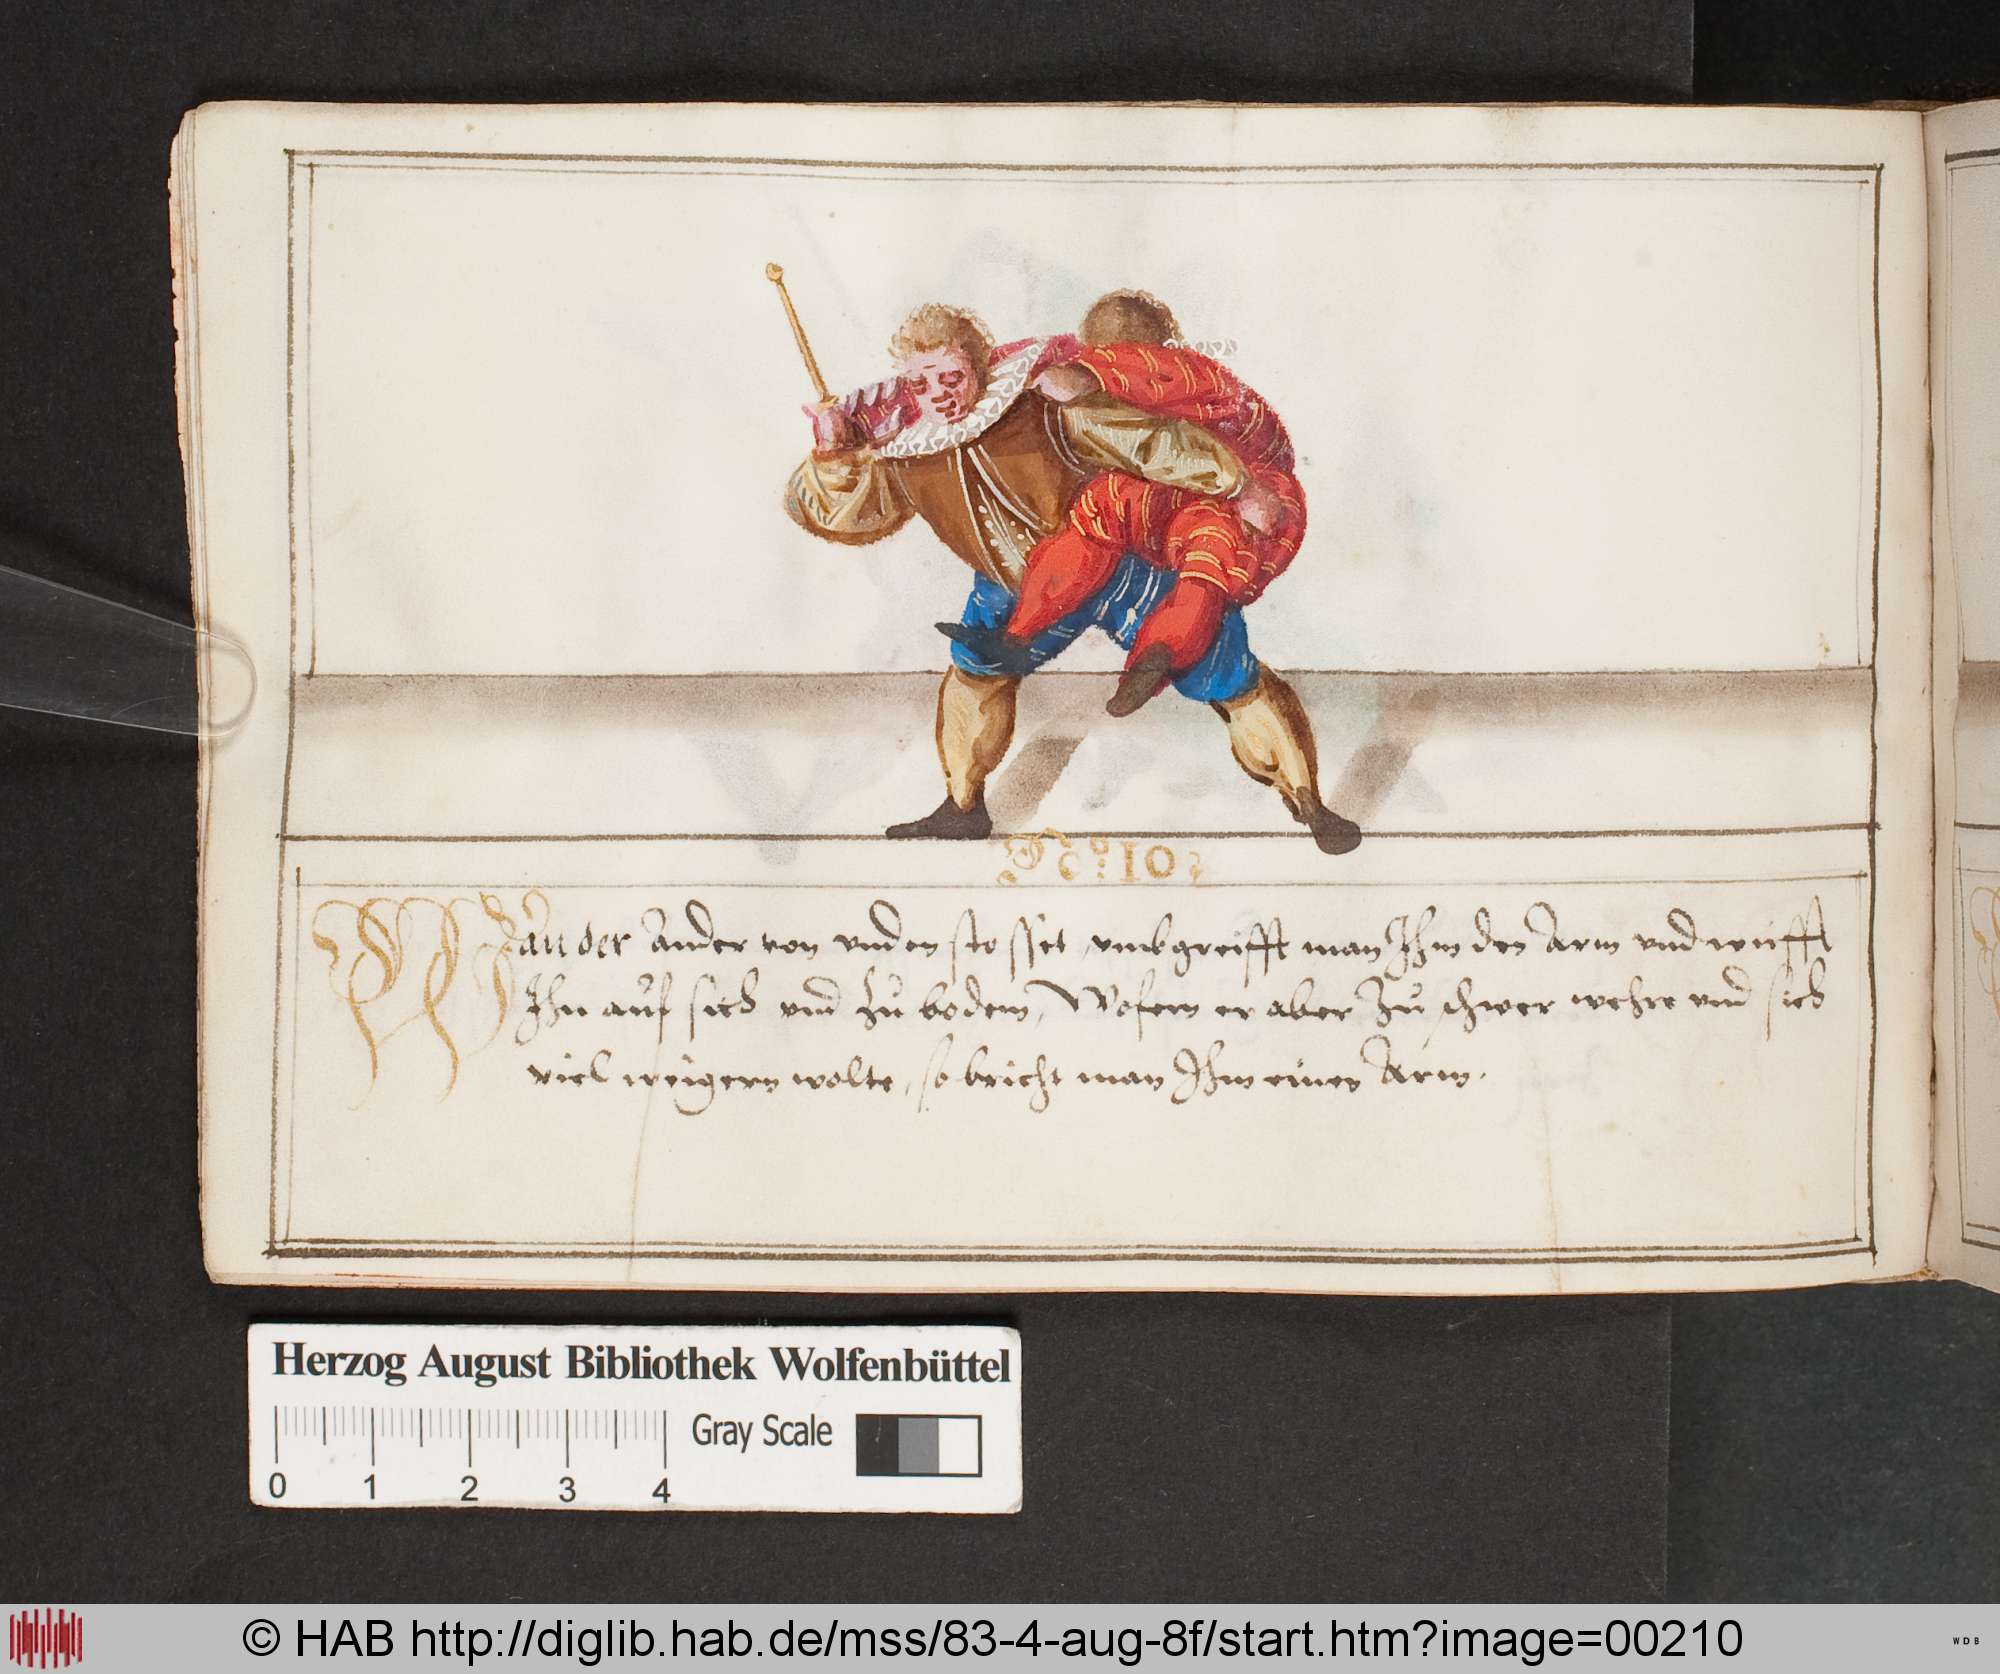 Wan der Ander von vnden stosset, vmbgreifft man Ihm den Arm vnd wirfft
Ihn auf sich vnd zu bodem, Wofern er aber zu schwer wehre vnd sich
viel weigern wolte, so bricht man Ihm einen Arm.
Herzog August Bibliothek Wolfenbüttel
Gray Scale
0 1 2 3 4
© HAB http://diglib.hab.de/mss/83-4-aug-8f/start.htm?image=00210
WDB